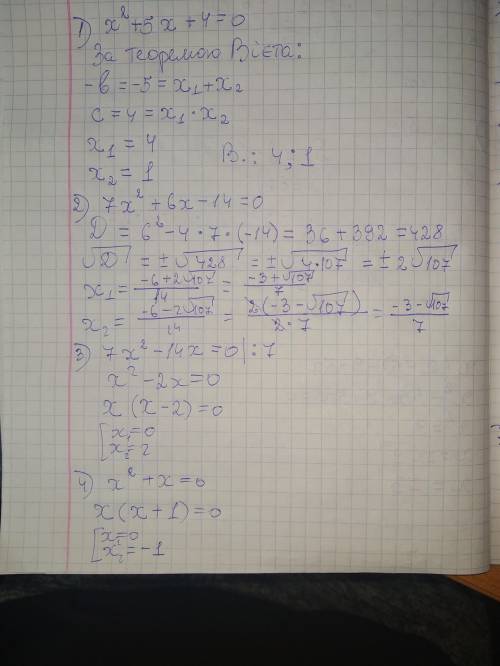 1) x²+5x+4=0
За теоремою Вієта:
-b=-5=x₁+x₂
c=4=x₁·x₂
x₁=4
x₂=1 В.: 4; 1
2) 7x²+6x-14=0
D=6²-4·7·(-14)=36+392=428
√D=±√428=±√4·107=±2√107
x₁=(-6+2√107)/14=(-3+√107)/7
x₂=(-6-2√107)/14=2(-3-√107)/2·7=(-3-√107)/7
3) 7x²-14x=0|:7
x²-2x=0
x(x-2)=0
[x₁=0
x₂=2
4) x²+x=0
x(x+1)=0
[x₁=0
x₂=-1